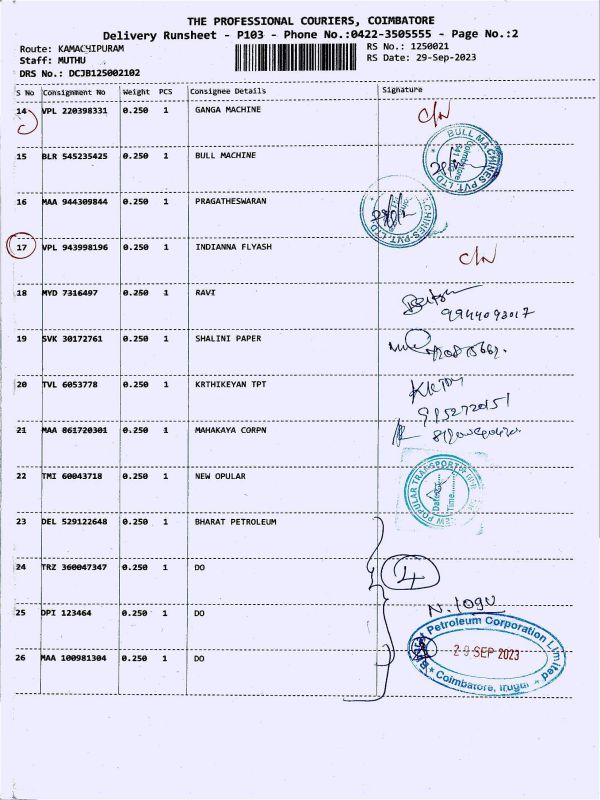 THE PROFESSIONAL COURIERS, COIMBATORE
Delivery Runsheet - P103 - Phone No.:0422-3505555 - Page No.:2
Route: KAMACHIPURAM RS No.: 1250021
Staff: MUTHU RS Date: 29-Sep-2023
DRS No.: DCJB125002102
S No Consignment No Weight PCS Consignee Details Signature
14 VPL 220398331 0.250 1 GANGA MACHINE C/N
15 BLR 545235425 0.250 1 BULL MACHINE
BULL MACHINES PVT. LTD
Coimbatore
641
16 MAA 944309844 0.250 1 PRAGATHESWARAN
CHINES PVT. LTD
17 VPL 943998196 0.250 1 INDIANNA FLYASH C/N
18 MYD 7316497 0.250 1 RAVI
9944093017
19 SVK 30172761 0.250 1 SHALINI PAPER
20 TVL 6053778 0.250 1 KRTHIKEYAN TPT
21 MAA 861720301 0.250 1 MAHAKAYA CORPN
22 TMI 60043718 0.250 1 NEW OPULAR
NEW POPULAR TRANSPORT
Date
Time
23 DEL 529122648 0.250 1 BHARAT PETROLEUM
24 TRZ 360047347 0.250 1 DO
4
25 DPI 123464 0.250 1 DO
N. logu
26 MAA 100981304 0.250 1 DO
Bharat Petroleum Corporation Limited
29 SEP 2023
Coimbatore, Irugur